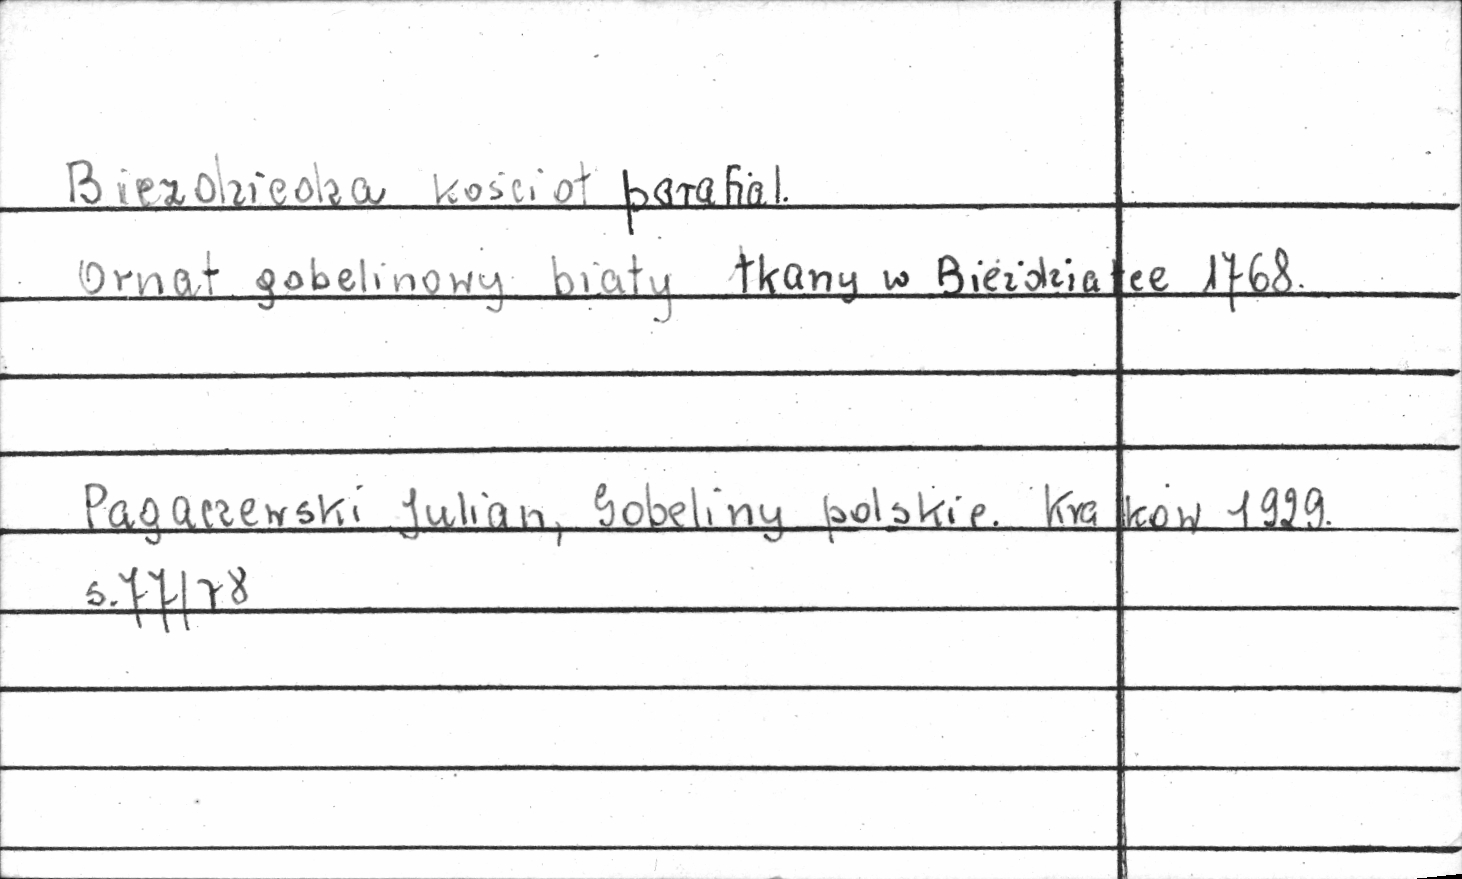 Biezdziedza kościoł parafial.
Ornat gobelinowy biały tkany w Bieździatce 1768.
Pagaczewski Julian, Gobeliny polskie. Kraków 1929.
s.77/78